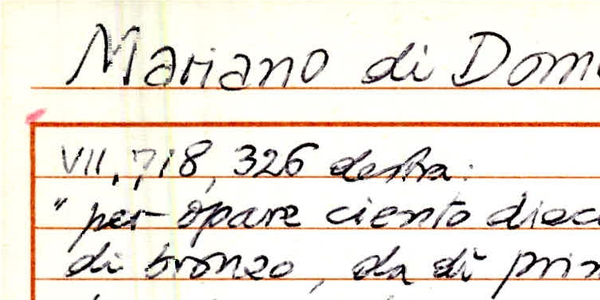 Mariano di Dom
VII, 718, 326 destra:
"per opare ciento dieci
di bronzo, da dì prim